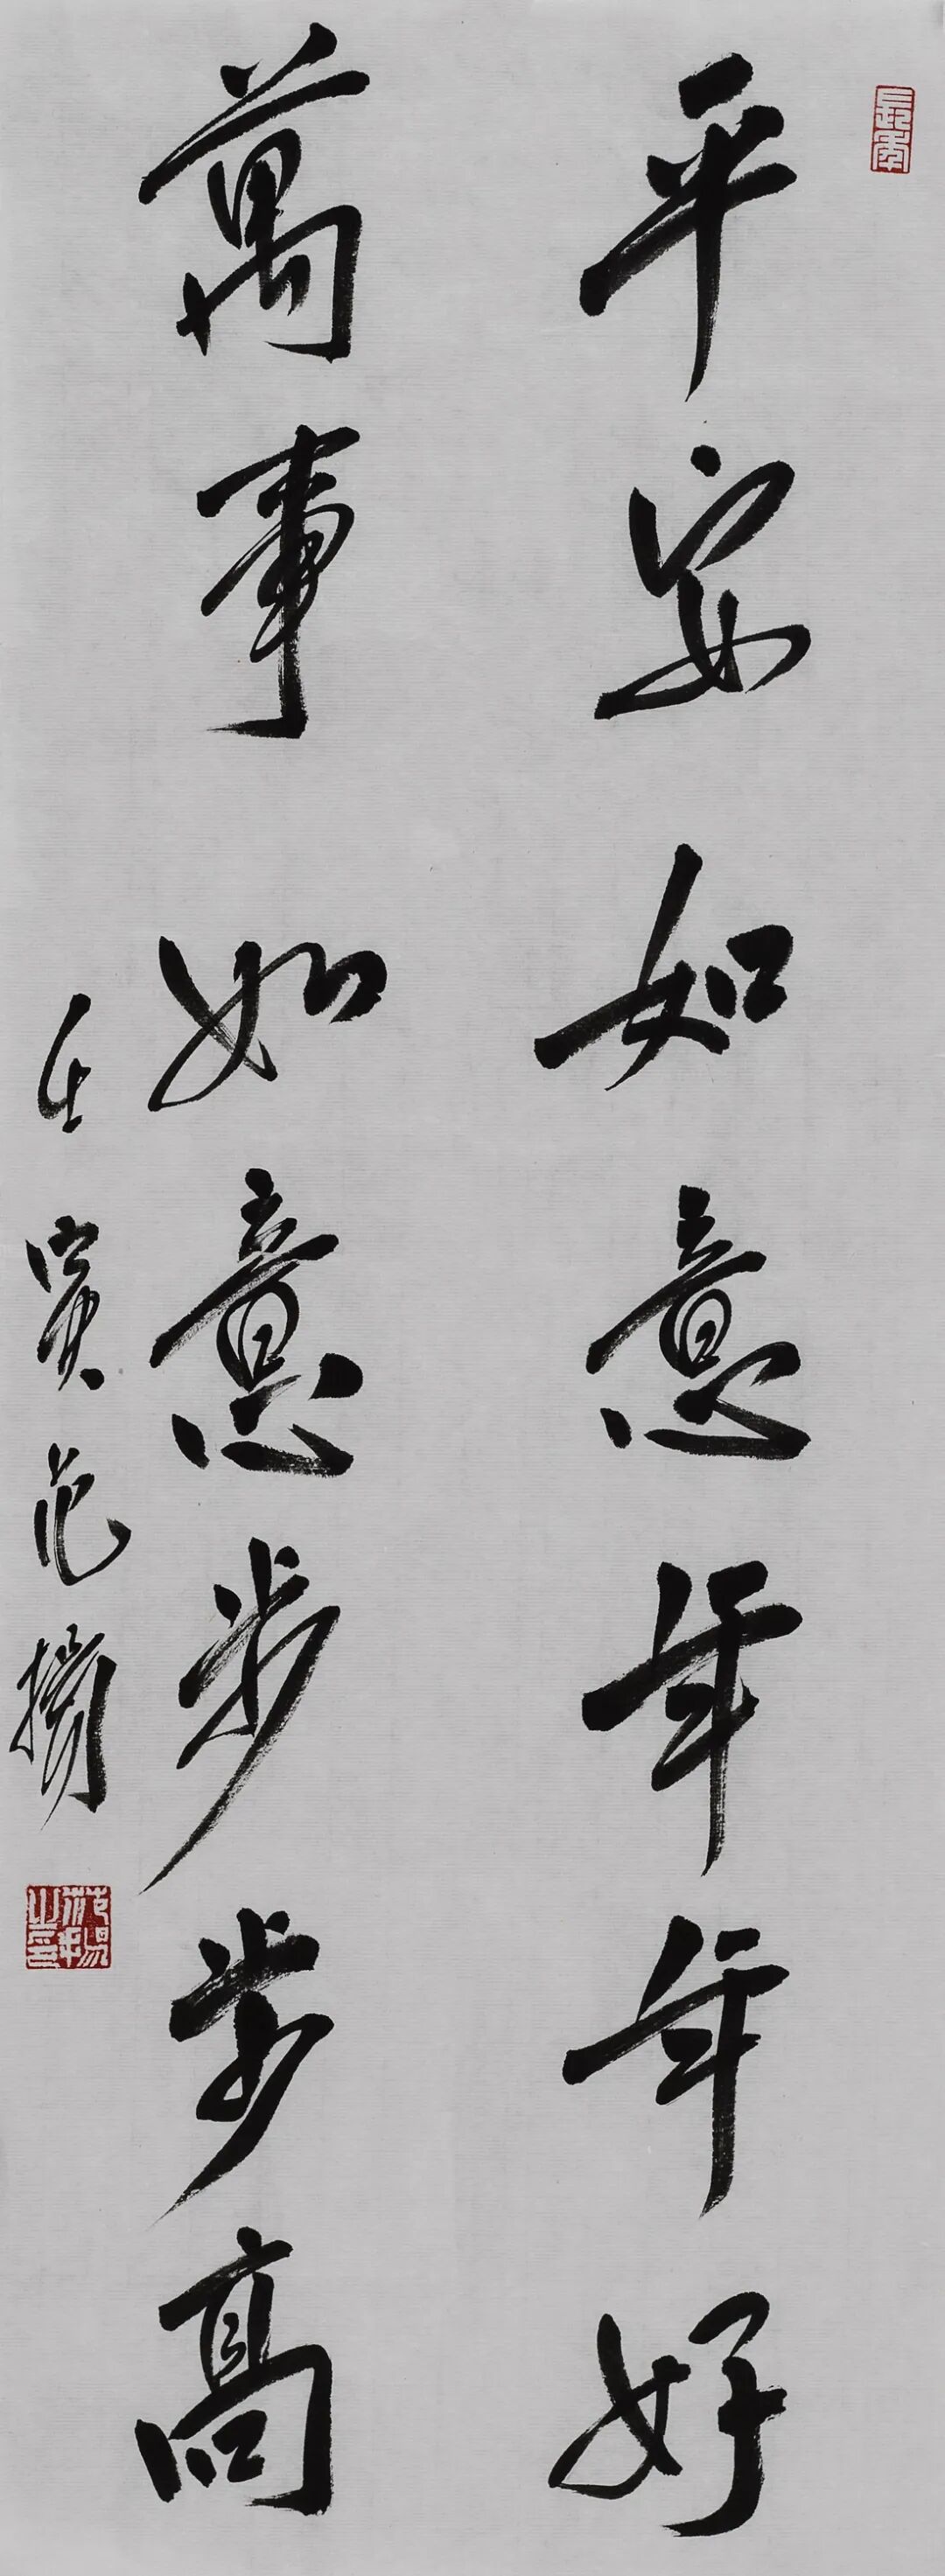 平安如意年年好
萬事如意步步高
壬寅范揚